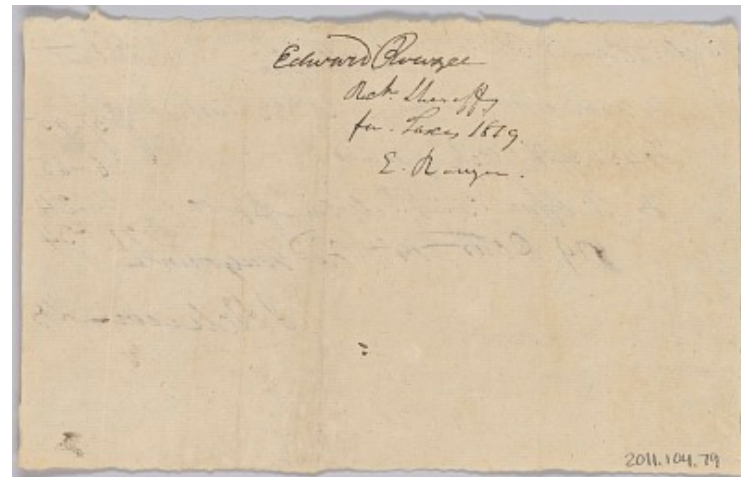 Edward Rouzee
Rct. Sheriffs
for. Taxes 1819.
E. Rouzee.
2011.104.79